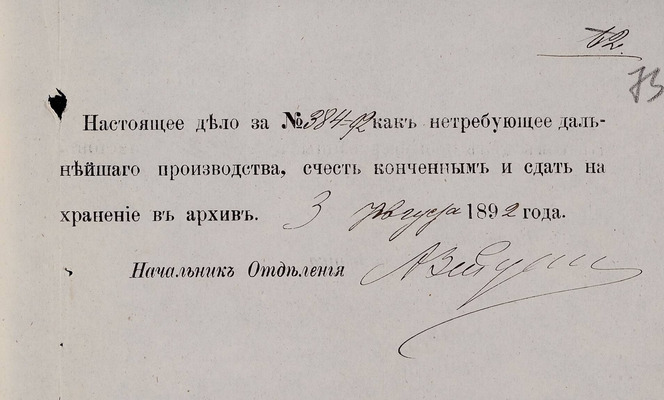 73
Настоящее дѣло за № 384-92 какъ нетребующее даль-
нѣйшаго производства, счесть конченнымъ и сдать на
храненіе въ архивъ. 3 Августа 1892 года.
Начальникъ Отдѣленія